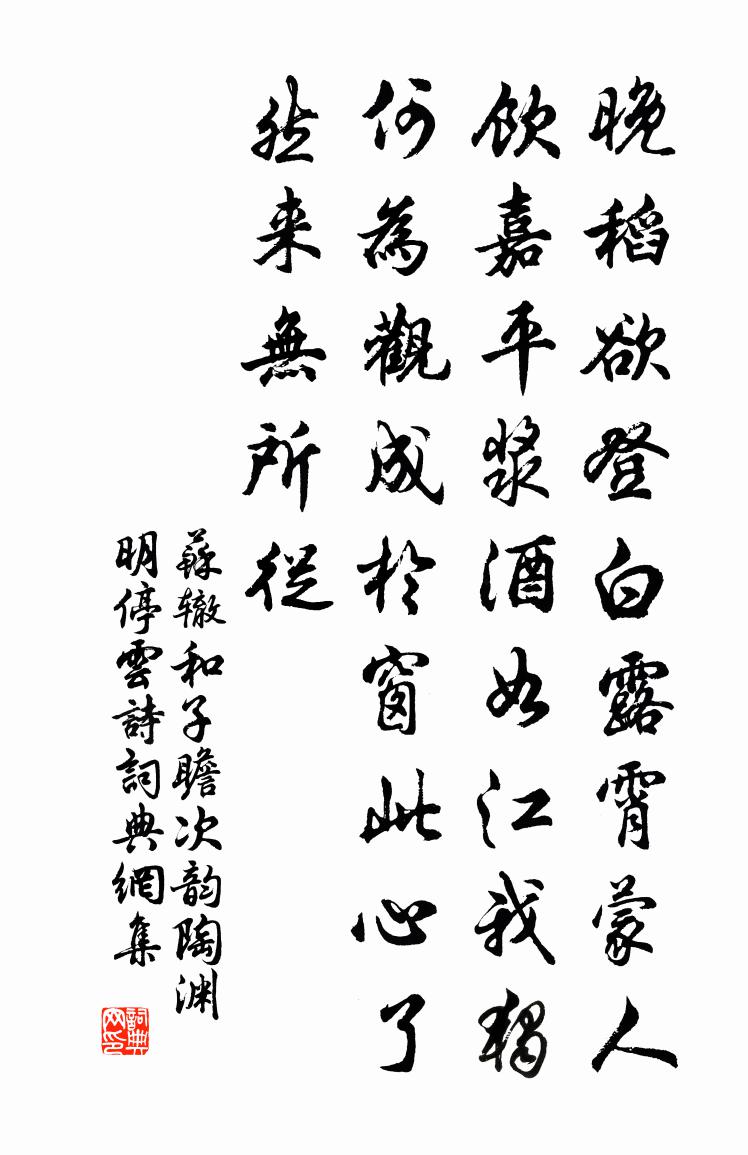 晚稻欲登白露霄蒙人
飲嘉平漿酒如江我獨
何為觀成於窗此心了
然来無所從
蘇辙和子瞻次韵陶渊
明停雲詩詞典網集
詞典网印